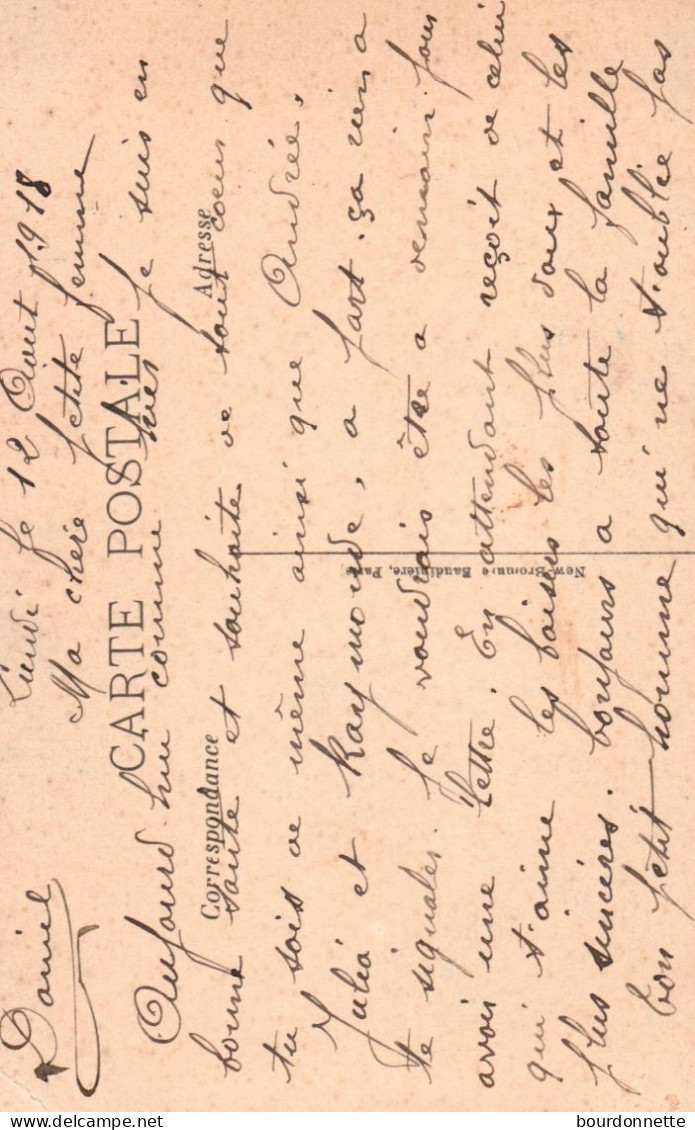 Lundi le 12 Aout 1918
Ma chère petite femme
CARTE POSTALE
Aujourd'hui comme hier je suis en
Correspondance
Adresse
bonne santé et souhaite de tout coeur que
tu sois de même ainsi que Andrée,
Julia et Raymonde, a part ça rien a
te signaler. Je voudrais être a demain pour
avoir une lettre. En attendant reçoit de celui
qui t'aime les baisers les plus doux et les
plus sincères. bonjours a toute la famille
bon petit homme qui ne t'oublie pas
Daniel
New-Brouni & Baudinière, Paris
bourdonnette